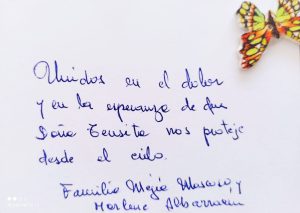 Unidos en el dolor
y en la esperanza de que
Doña Teusita nos proteje
desde el cielo.
Familia Mejía Moscoso, y
Marlene Albarracín